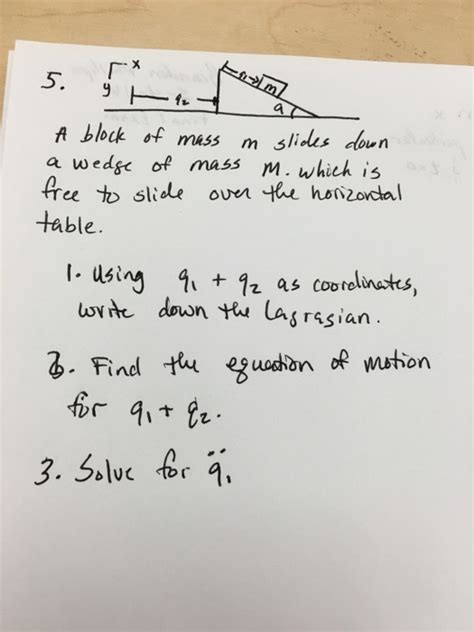 5.
x
y
q2
m
a
A block of mass m slides down
a wedge of mass M. which is
free to slide over the horizontal
table.
1. Using q1 + q2 as coordinates,
write down the Lagrasian.
2. Find the equation of motion
for q1 + q2.
3. Solve for q̈1